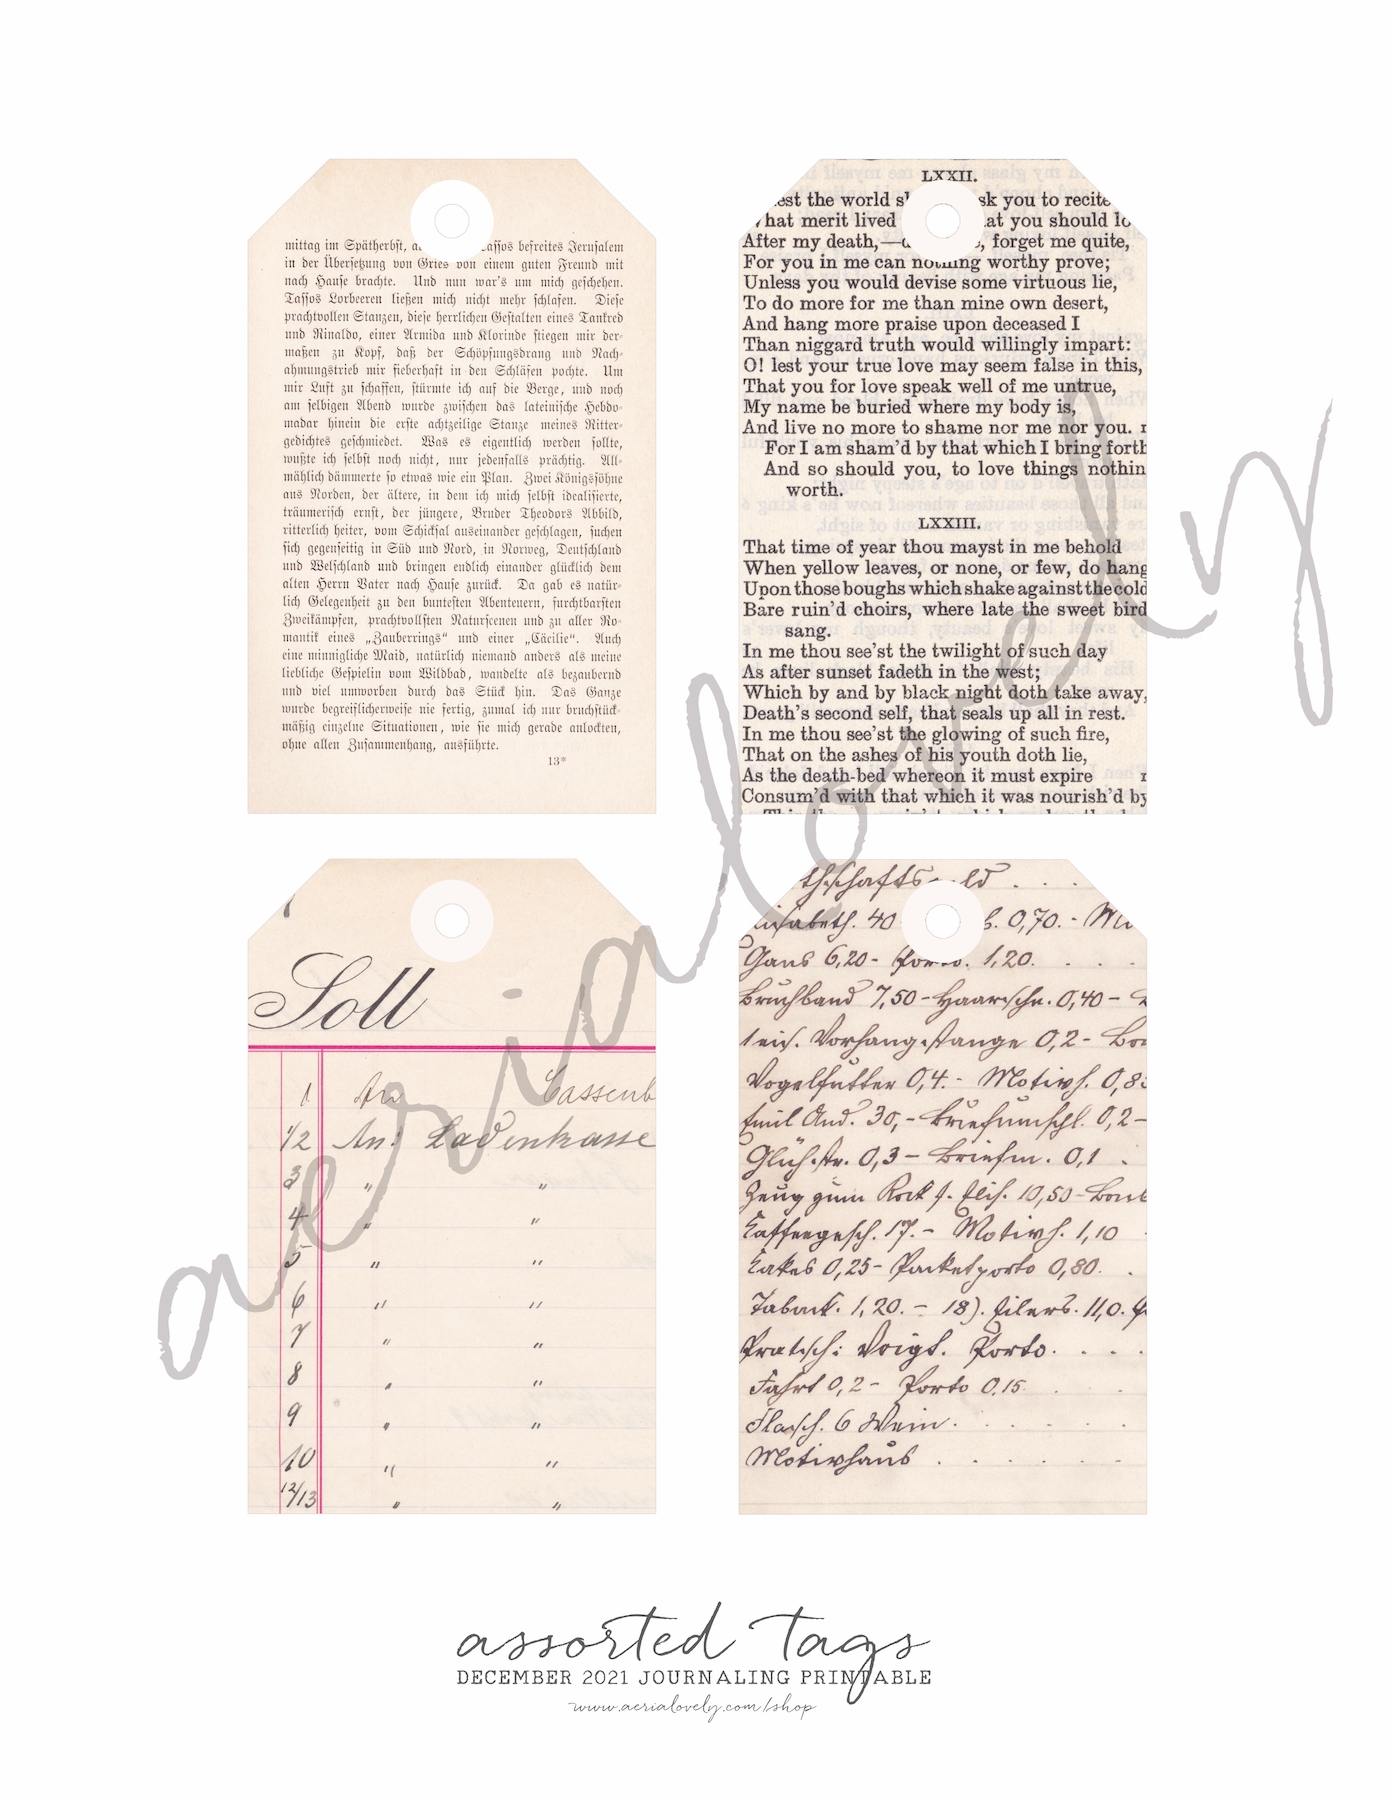 mittag im Spätherbst, Tassos befreites Jerusalem
in der Übersetzung von Gries von einem guten Freund mit
nach Hause brachte. Und nun war's um mich geschehen.
Tassos Lorbeeren ließen mich nicht mehr schlafen. Diese
prachtvollen Stanzen, diese herrlichen Gestalten eines Tankred
und Rinaldo, einer Armida und Klorinde stiegen mir der-
maßen zu Kopf, daß der Schöpfungsdrang und Nach-
ahmungstrieb mir fieberhaft in den Schläfen pochte. Um
mir Luft zu schaffen, stürmte ich auf die Berge, und noch
am selbigen Abend wurde zwischen das lateinische Hebdo-
madar hinein die erste achtzeilige Stanze meines Ritter-
gedichtes geschmiedet. Was es eigentlich werden sollte,
wußte ich selbst noch nicht, nur jedenfalls prächtig. All-
mählich dämmerte so etwas wie ein Plan. Zwei Königssöhne
aus Norden, der ältere, in dem ich mich selbst idealisierte,
träumerisch ernst, der jüngere, Bruder Theodors Abbild,
ritterlich heiter, vom Schicksal auseinander geschlagen, suchen
sich gegenseitig in Süd und Nord, in Norweg, Deutschland
und Welschland und bringen endlich einander glücklich dem
alten Herrn Vater nach Hause zurück. Da gab es natür-
lich Gelegenheit zu den buntesten Abenteuern, furchtbarsten
Zweikämpfen, prachtvollsten Naturscenen und zu aller Ro-
mantik eines „Zauberrings“ und einer „Cäcilie“. Auch
eine minnigliche Maid, natürlich niemand anders als meine
liebliche Gespielin vom Wildbad, wandelte als bezaubernd
und viel umworben durch das Stück hin. Das Ganze
wurde begreiflicherweise nie fertig, zumal ich nur bruchstück-
mäßig einzelne Situationen, wie sie mich gerade anlockten,
ohne allen Zusammenhang, ausführte.
13*
LXXII.
est the world sk you to recite
hat merit lived at you should lo
After my death,— , forget me quite,
For you in me can nothing worthy prove;
Unless you would devise some virtuous lie,
To do more for me than mine own desert,
And hang more praise upon deceased I
Than niggard truth would willingly impart:
O! lest your true love may seem false in this,
That you for love speak well of me untrue,
My name be buried where my body is,
And live no more to shame nor me nor you.
For I am sham'd by that which I bring forth
And so should you, to love things nothin
worth.
LXXIII.
That time of year thou mayst in me behold
When yellow leaves, or none, or few, do hang
Upon those boughs which shake against the cold
Bare ruin'd choirs, where late the sweet bird
sang.
In me thou see'st the twilight of such day
As after sunset fadeth in the west;
Which by and by black night doth take away,
Death's second self, that seals up all in rest.
In me thou see'st the glowing of such fire,
That on the ashes of his youth doth lie,
As the death-bed whereon it must expire
Consum'd with that which it was nourish'd by
Soll
1 An Cassenb
1/2 An: Ladenkasse
3 " "
4 " "
5 " "
6 " "
7 " "
8 " "
9 " "
10 " "
12/13 " "
thschaftsgeld . . .
lisabeth. 40 0,70. -
Gans 6,20 - Porto. 1,20. . . .
Bruchband 7,50 - Haarschn. 0,40 -
1 eis. Vorhangstange 0,2 -
Vogelfutter 0,4. - Motivh. 0,8
Emil And. 30, - Briefumschl. 0,2 -
Glühstr. 0,3 - Briefm. 0,1 .
Zeug zum Rock f. Elis. 10,50 -
Kaffeegesch. 17. - Motivh. 1,10
Kakes 0,25 - Packetporto 0,80. .
Taback. 1,20. - 18). Eilers. 11,0.
Pratsch: Voigt. Porto. . . .
Fahrt 0,2 - Porto 0,15
Flasch. 6 Wein. . . .
Motivhaus . . . .
aerialovely
assorted tags
DECEMBER 2021 JOURNALING PRINTABLE
www.aerialovely.com/shop